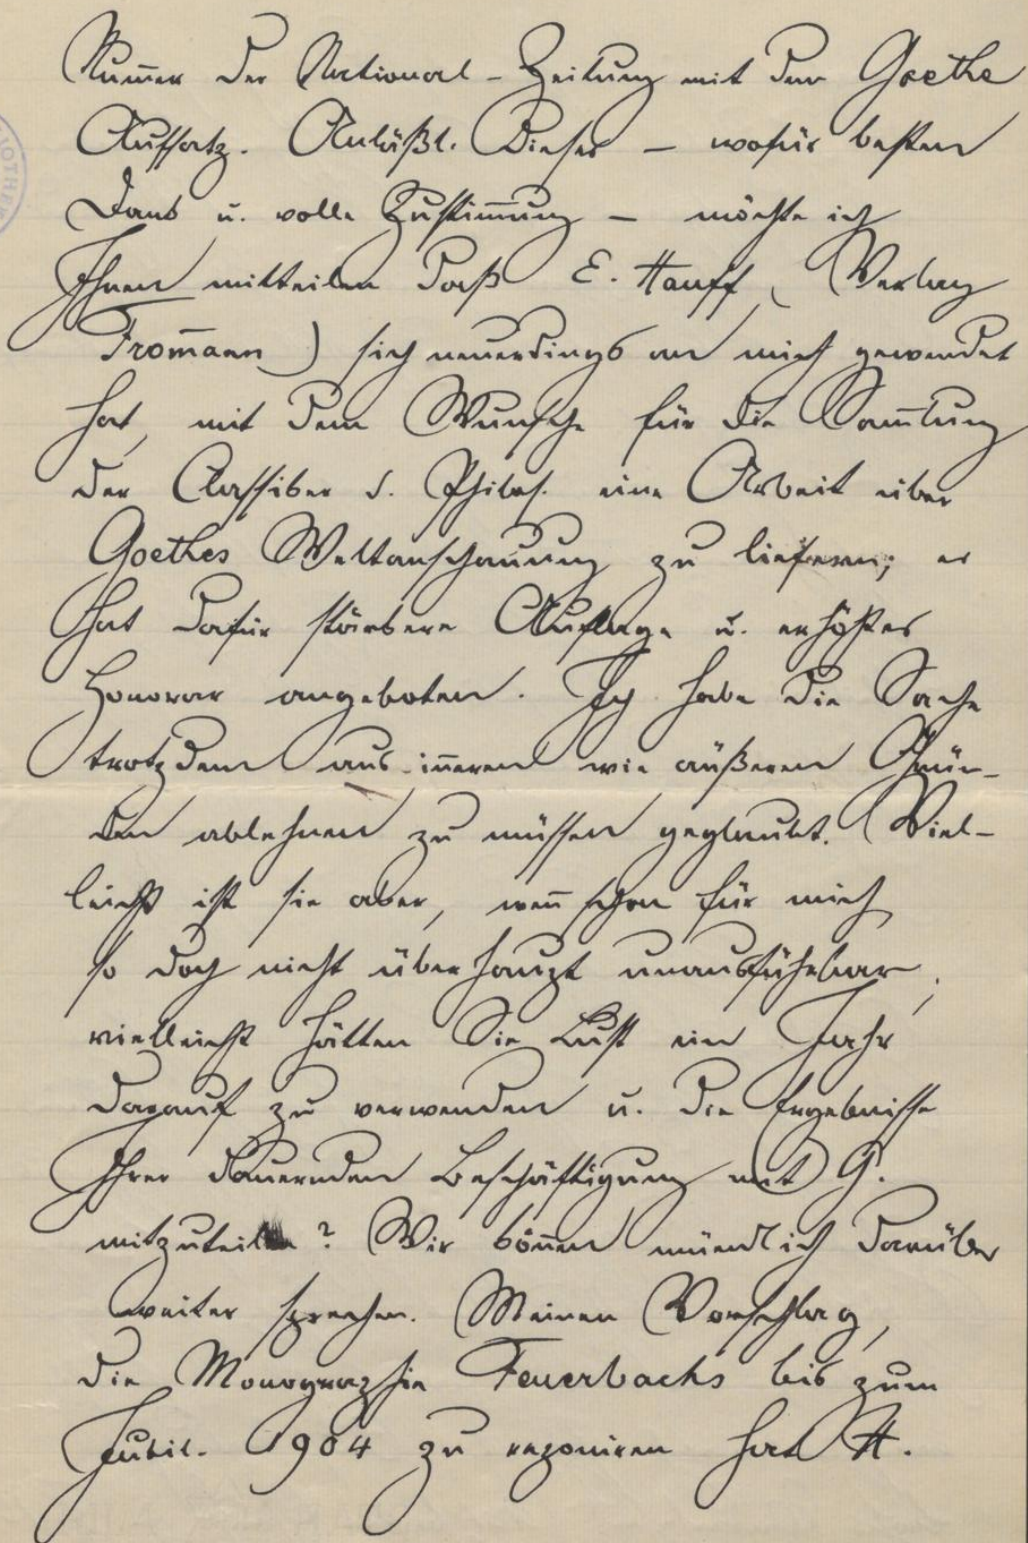 Num̄er der National-Zeitung mit dem Goethe
Aufsatz. Anläßl. dieses – wofür besten
Dank u. volle Zustim̄ung – möchte ich
Ihnen mitteilen daß E. Hauff, (Verlag
From̄ann) sich neuerdings an mich gewendet
hat, mit dem Wunsche für die Sam̄lung
der Classiker d. Philos. eine Arbeit über
Goethes Weltanschauung zu liefern; er
hat dafür stärkere Auflage u. erhöhtes
Honorar angeboten. Ich habe die Sache
trotzdem aus in̄eren wie äußeren Grün-
den ablehnen zu müssen geglaubt. Viel-
leicht ist sie aber, wen̄ schon für mich
so doch nicht überhaupt unausführbar;
vielleicht hätten Sie Lust ein Jahr
darauf zu verwenden u. die Ergebnisse
Ihrer dauernden Beschäftigung mit G.
mitzuteilen? Wir kön̄en mündlich darüber
weiter sprechen. Meinen Vorschlag,
die Monographie Feuerbachs bis zum
Jubil. 1904 zu reponiren hat H.